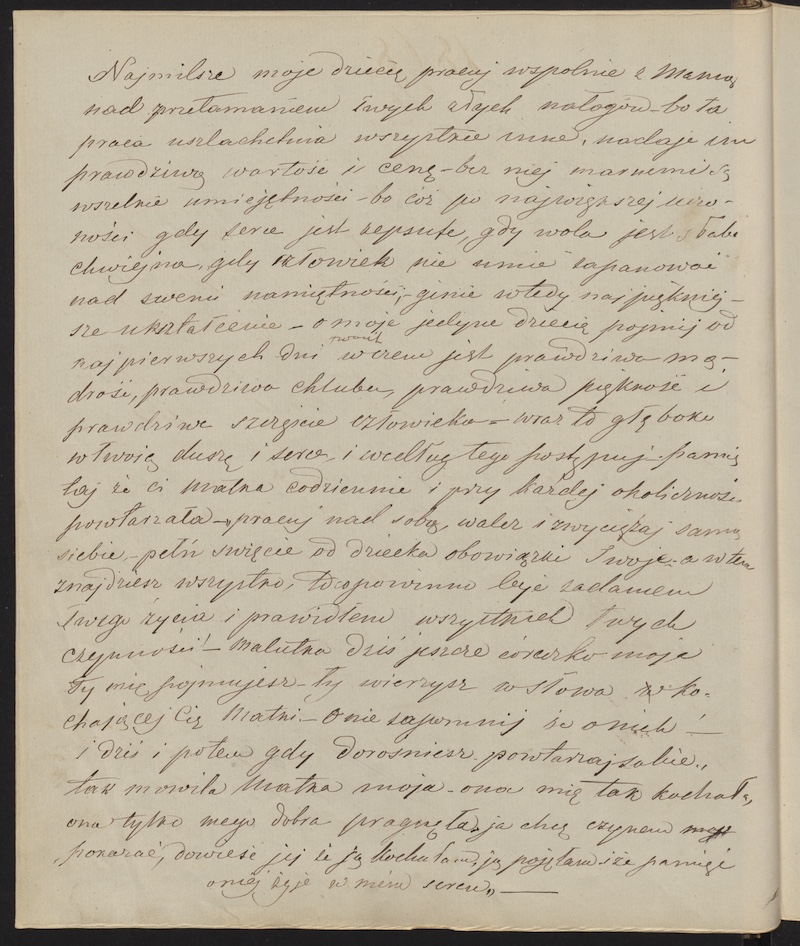 Najmilsze moje dziecię pracuj wspolnie z Mamą
nad przełamaniem twych złych nałogów – bo ta
praca uszlachetnia wszystkie inne, nadaje im
prawdziwą wartość i cenę – bez niej marnemi są
wszelkie umiejętności – bo cóż po największej uczo-
ności gdy serce jest zepsute, gdy wola jest słaba
chwiejna, gdy człowiek nie umie zapanować
nad swemi namiętności, – ginie wtedy najpiękniej-
sze ukształcenie – o moje jedyne dziecię pojmij od
najpierwszych dni w czem jest prawdziwa mą-
drość, prawdziwa chluba, prawdziwa piękność i
prawdziwe szczęście człowieka – wraź to głęboko
w twoją duszę i serce, i według tego postępuj – pamię
taj że ci Matka codziennie i przy każdej okoliczności
powtarzała – pracuj nad sobą, walcz i zwyciężaj samą
siebie, – pełń święcie od dziecka obowiązki Twoje – a w tem
znajdziesz wszystko, to powinno być zadaniem
twego życia i prawidłem wszystkich twych
czynności! – Malutka dziś jeszcze córeczko moja
ty mię pojmujesz – ty wierzysz w słowa ko-
chającej Cię Matki – O nie zapomnij że o nich! –
i dziś i potem gdy dorośniesz powtarzaj sobie „
tak mowiła Matka moja – ona mię tak kochała,
ona tylko mego dobra pragnęła, ja chcę czynem
pokazać, dowieść jej że ją kochałam, ją pojęłam i że pamięć
o niej żyje w mém sercu" –